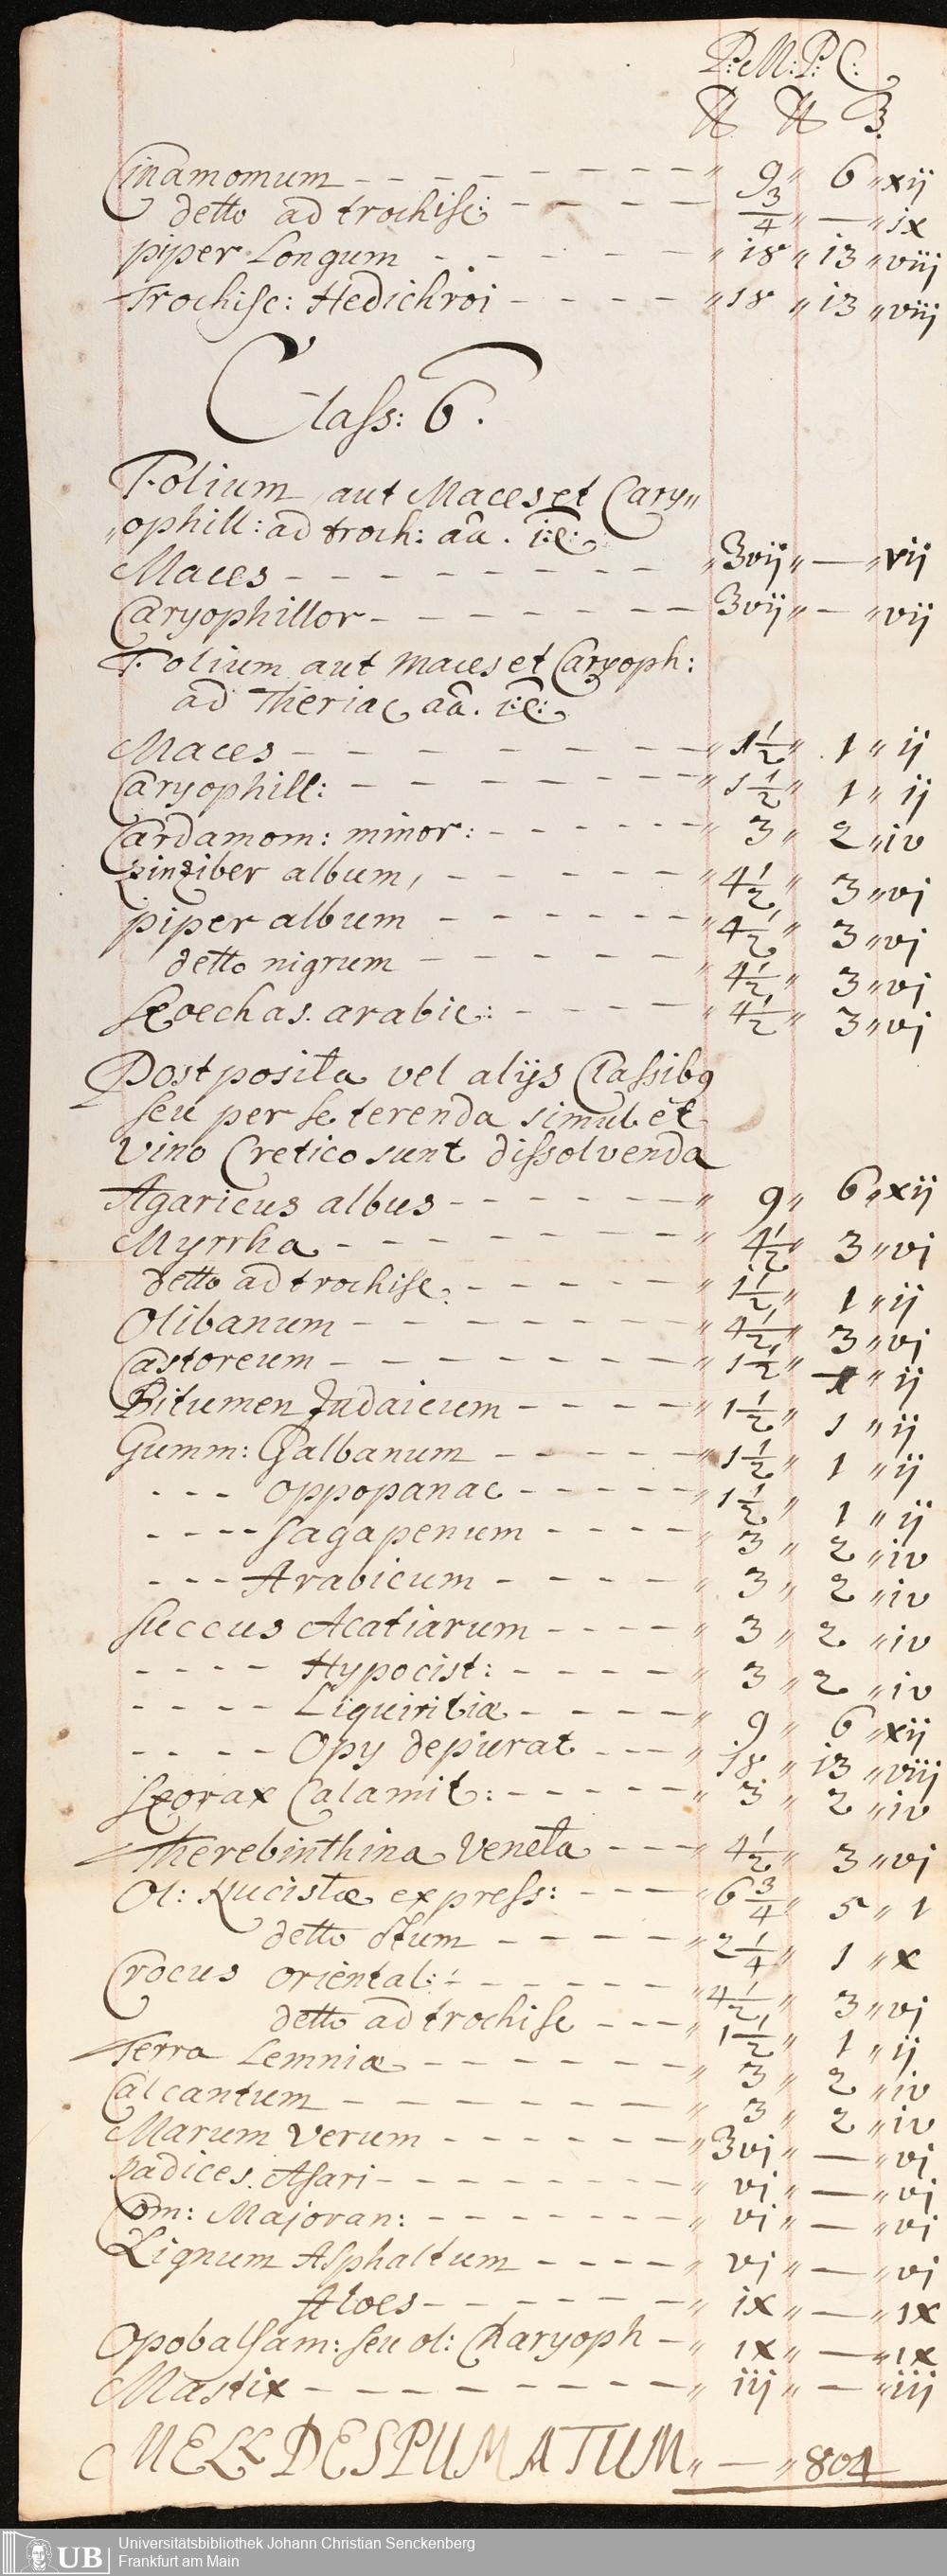 P: M: P: C:
℔ ℔ ℥.
Cinamomum - - - - - - - - - " 9 " 6 " xij
detto ad trochisc: - - - - " 3/4 " — " ix
piper Longum - - - - - - " 18 " 13 " viij
Trochisc: Hedichroi - - - - " 18 " 13 " viij
Class: 6.
Folium aut Maces et Cary"
"ophill: ad troch: aâ. i:e:
Maces - - - - - - - - - " ℥vij " — " vij
Caryophillor - - - - - - - ℥vij " — " vij
Folium aut maces et Caryoph:
ad Theriac aâ. i:e:
Maces - - - - - - - - " 1 1/2 " 1 " ij
Caryophill: - - - - - - - - " 1 1/2 " 1 " ij
Cardamom: minor: - - - - - - " 3 " 2 " iv
Zinziber album, - - - - - - " 4 1/2 " 3 " vj
piper album - - - - - - " 4 1/2 " 3 " vj
detto nigrum - - - - - - " 4 1/2 " 3 " vj
Stoechas. arabic: - - - - - " 4 1/2 " 3 " vj
Postposita vel alijs Classibq
seu per se terenda simul et
Vino Cretico sunt dissolvenda
Agaricus albus - - - - - - - " 9 " 6 " xij
Myrrha - - - - - - - - - " 4 1/2 " 3 " vj
detto ad trochisc: - - - - - - " 1 1/2 " 1 " ij
Olibanum - - - - - - - - - " 4 1/2 " 3 " vj
Castoreum - - - - - - - - - " 1 1/2 " 1 " ij
Bitumen Judaicum - - - - - " 1 1/2 " 1 " ij
Gumm: Galbanum - - - - - - " 1 1/2 " 1 " ij
- - - oppopanac - - - - - " 1 1/2 " 1 " ij
- - - - Sagapenum - - - - " 3 " 2 " iv
- - - Arabicum - - - - - " 3 " 2 " iv
Succus Acatiarum - - - - " 3 " 2 " iv
- - - - Hypocist: - - - - - " 3 " 2 " iv
- - - - Liquiritia - - - - - " 9 " 6 " xij
- - - - Opy depurat - - - " 18 " 13 " viij
Storax Calamit: - - - - - " 3 " 2 " iv
Therebinthina Veneta - - - " 4 1/2 " 3 " vj
Ol: Nucistæ express: - - - " 6 3/4 " 5 " 1
detto Stum - - - - - " 2 1/4 " 1 " x
Crocus oriental: - - - - - - " 4 1/2 " 3 " vj
detto ad trochisc - - - " 1 1/2 " 1 " ij
Terra Lemnia - - - - - - - " 3 " 2 " iv
Calcantum - - - - - - - - " 3 " 2 " iv
Marum Verum - - - - - - - " ℥vj " — " vj
Radices. Asari - - - - - - - - " vj " — " vj
Com: Majoran: - - - - - - - " vj " — " vj
Lignum Asphaltum - - - - " vj " — " vj
Aloes - - - - - - - " ix " — " ix
Opobalsam: seu ol: Charyoph - " ix " — " ix
Mastix - - - - - - - - - " iij " — " iij
MELL DESPUMATUM " — " 804
UB Universitätsbibliothek Johann Christian Senckenberg
Frankfurt am Main